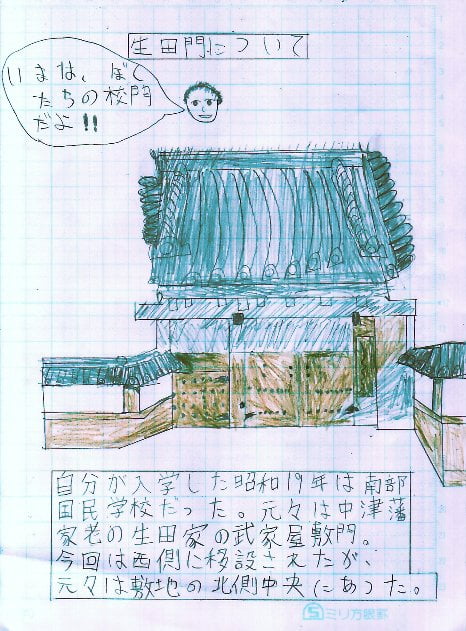 生田門について
いまは、ぼく
たちの校門
だよ!!
自分が入学した昭和19年は南部
国民学校だった。元々は中津藩
家老の生田家の武家屋敷門。
今回は西側に移設されたが、
元々は敷地の北側中央にあった。
5ミリ方眼罫